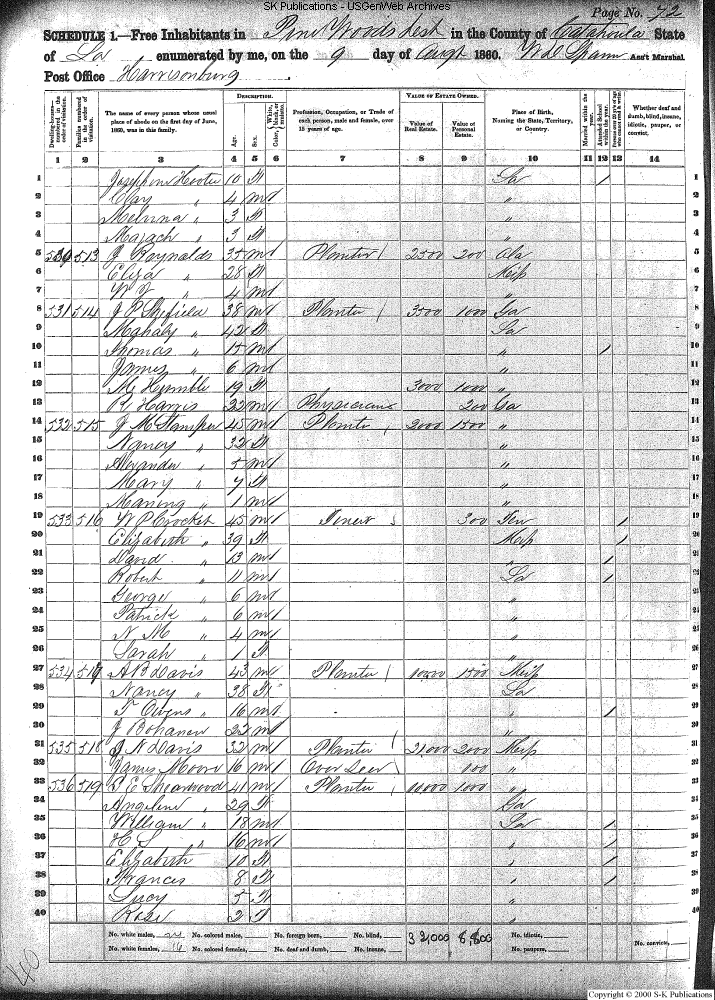 SK Publications - USGenWeb Archives
Page No. 72
SCHEDULE 1.—Free Inhabitants in Piney Woods Dest in the County of Catahoula State
of La enumerated by me, on the 9 day of Augt 1860. Ass't Marshal
Post Office Harrisonburg
Dwelling-houses— numbered in the order of visitation.
Families numbered in the order of visitation.
The name of every person whose usual place of abode on the first day of June, 1860, was in this family.
DESCRIPTION.
Age.
Sex.
White, black, or mulatto.
Profession, Occupation, or Trade of each person, male and female, over 15 years of age.
VALUE OF ESTATE OWNED.
Value of Real Estate.
Value of Personal Estate.
Place of Birth, Naming the State, Territory, or Country.
Married within the year.
Attended School within the year.
Persons over 20 y'rs of age who cannot read & write.
Whether deaf and dumb, blind, insane, idiotic, pauper, or convict.
1 2 3 4 5 6 7 8 9 10 11 12 13 14
1 Hooter 10 f La / 1
2 Clay " 4 m " 2
3 " 3 f " 3
4 " 3 f " 4
5 530 513 J Raynolds 35 m Planter 2500 200 Ala 5
6 Eliza " 28 f Misp 6
7 " 4 m " 7
8 531 514 38 m Planter 3500 1000 Ga 8
9 Mahaly " 42 f La 9
10 Thomas " 15 m " / 10
11 James " 6 m " 11
12 Humble 19 f 3000 1000 " 12
13 Harris 22 m Physician 200 Ga 13
14 532 515 J M Stamper 45 m Planter 2000 1500 " 14
15 Nancy " 32 f " 15
16 Alexander " 5 m " 16
17 Mary " 7 f " 17
18 Maning " 1 m " 18
19 533 516 W P Crocket 45 m 300 Ten / 19
20 Elizabeth " 39 f Misp / 20
21 David " 13 m " / 21
22 Robert " 11 m La / 22
23 George " 6 m " 23
24 Patrick " 6 m " 24
25 N M " 4 m " 25
26 Sarah " 1 f " 26
27 534 517 A B Davis 43 m Planter 1500 Misp 27
28 Nancy " 38 f La 28
29 T Owens " 16 m " / 29
30 J Bohanen 22 m " 30
31 535 518 J N Davis 32 m Planter 21000 2000 Misp 31
32 James Moore 16 m Over Seer 100 " 32
33 536 519 41 m Planter 1000 " 33
34 Angeline " 29 f Ga 34
35 William " 18 m La / 35
36 H S " 16 m " / 36
37 Elizabeth 10 f " / 37
38 Frances 8 f " / 38
39 Lucy 5 f " 39
40 Rose 2 f " 40
No. white males, 24 No. colored males, No. foreign born, No. blind, No. idiotic,
No. white females, 16 No. colored females, No. deaf and dumb, No. insane, 8,800 No. paupers, No. convicts,
40
Copyright © 2000 S-K Publications